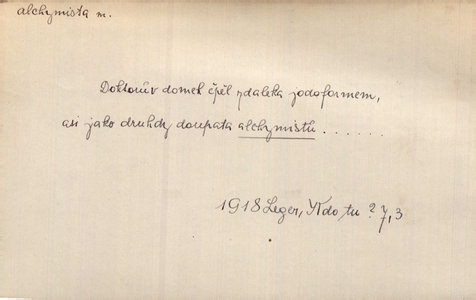 alchymista m.
Doktorův domek čpěl zdaleka jodoformem,
asi jako druhdy doupata alchymistů . . . . . .
1918 Leger, Kdo tu? 7,3